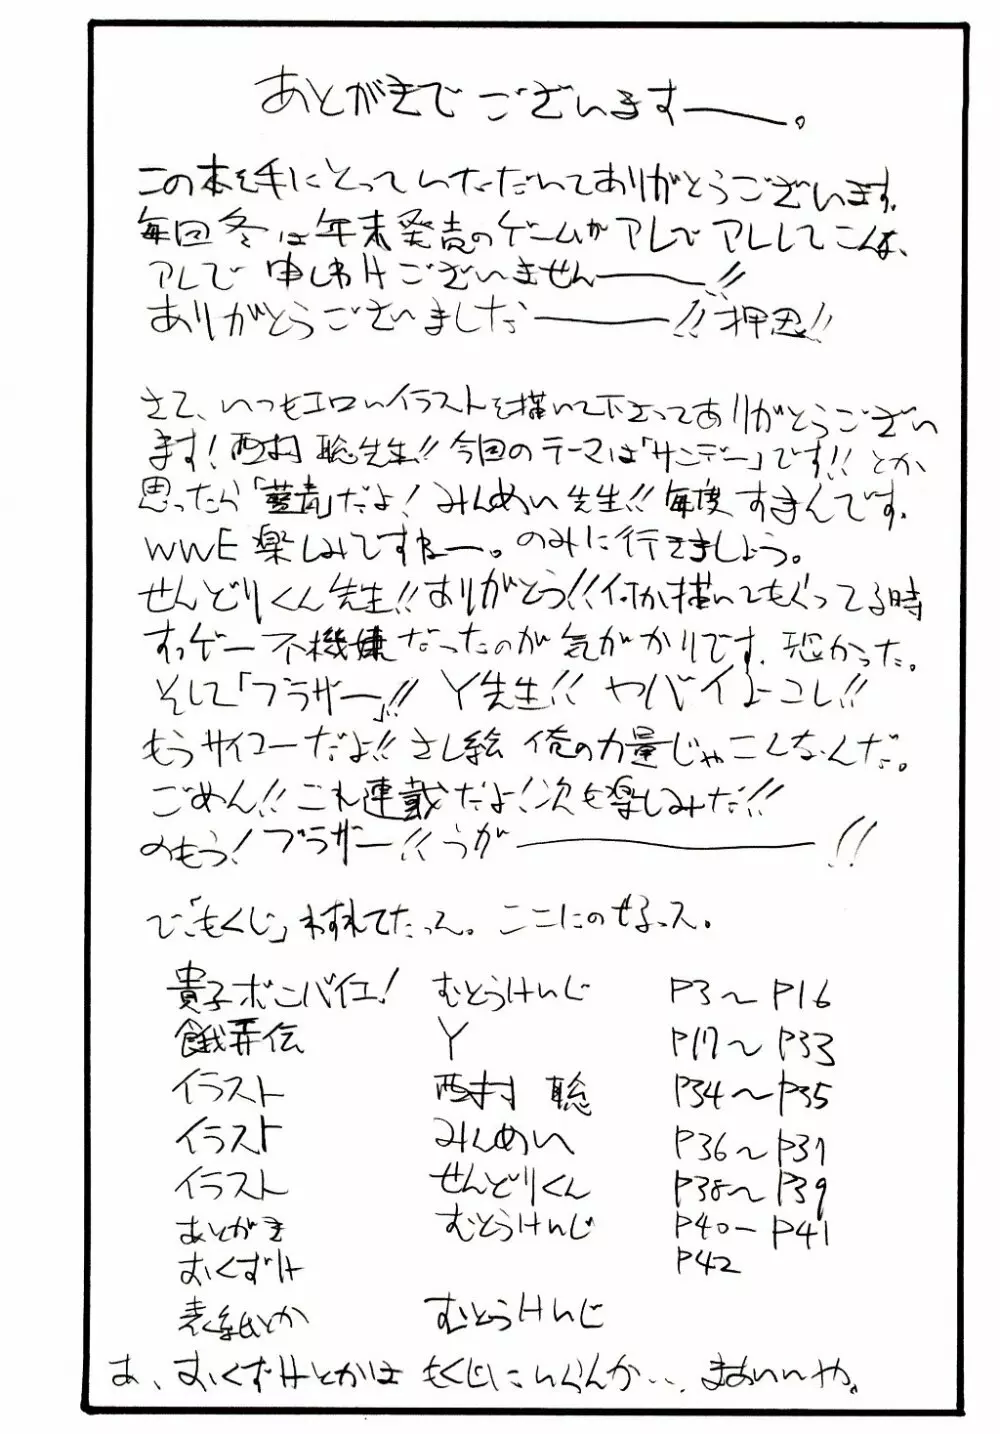 あとがきでございますー。
この本を手にとっていただいてありがとうございます。
毎回冬は年末発売のゲームがアレでアレしてこんな、
アレで申しわけございませんーー!!
ありがとうございましたーー!!押忍!!
さて、いつもエロいイラストを描いて下さってありがとうござい
ます!西村聡先生!!今回のテーマは「サンデー」です!!とか
思ったら「藍青」だよ!みんめい先生!!毎度すまんです。
WWE楽しみですねー。のみに行きましょう。
せんどりくん先生!!ありがとう!!何か描いてもらってる時
すっげー不機嫌だったのが気がかりです。恐かった。
そして「ブラザー」!!Y先生!!ヤバイよコレ!!
もうサイコーだよ!!さし絵俺の力量じゃこんなんだ。
ごめん!!これ連載だよ!次も楽しみだ!!
のもう!ブラザー!!うがーーー!!
で「もくじ」わすれてたっス。ここにのせるっス。
貴子ボンバイエ! むとうけいじ P3〜P16
餓弄伝 Y P17〜P33
イラスト 西村聡 P34〜P35
イラスト みんめい P36〜P37
イラスト せんどりくん P38〜P39
あとがき むとうけいじ P40ーP41
おくずけ P42
表紙とか むとうけいじ
あ、おくずけとかは もくじにいらんか… まあいいや。